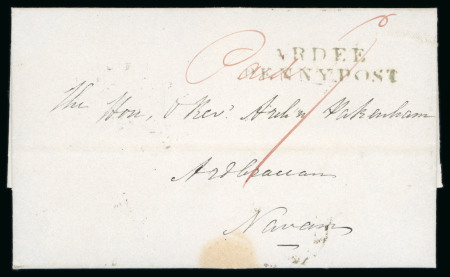 ARDEE
PENNY POST
Paid 1
The Hon, & Rev.d Arch.n Pakenham
Ardbraccan
Navan